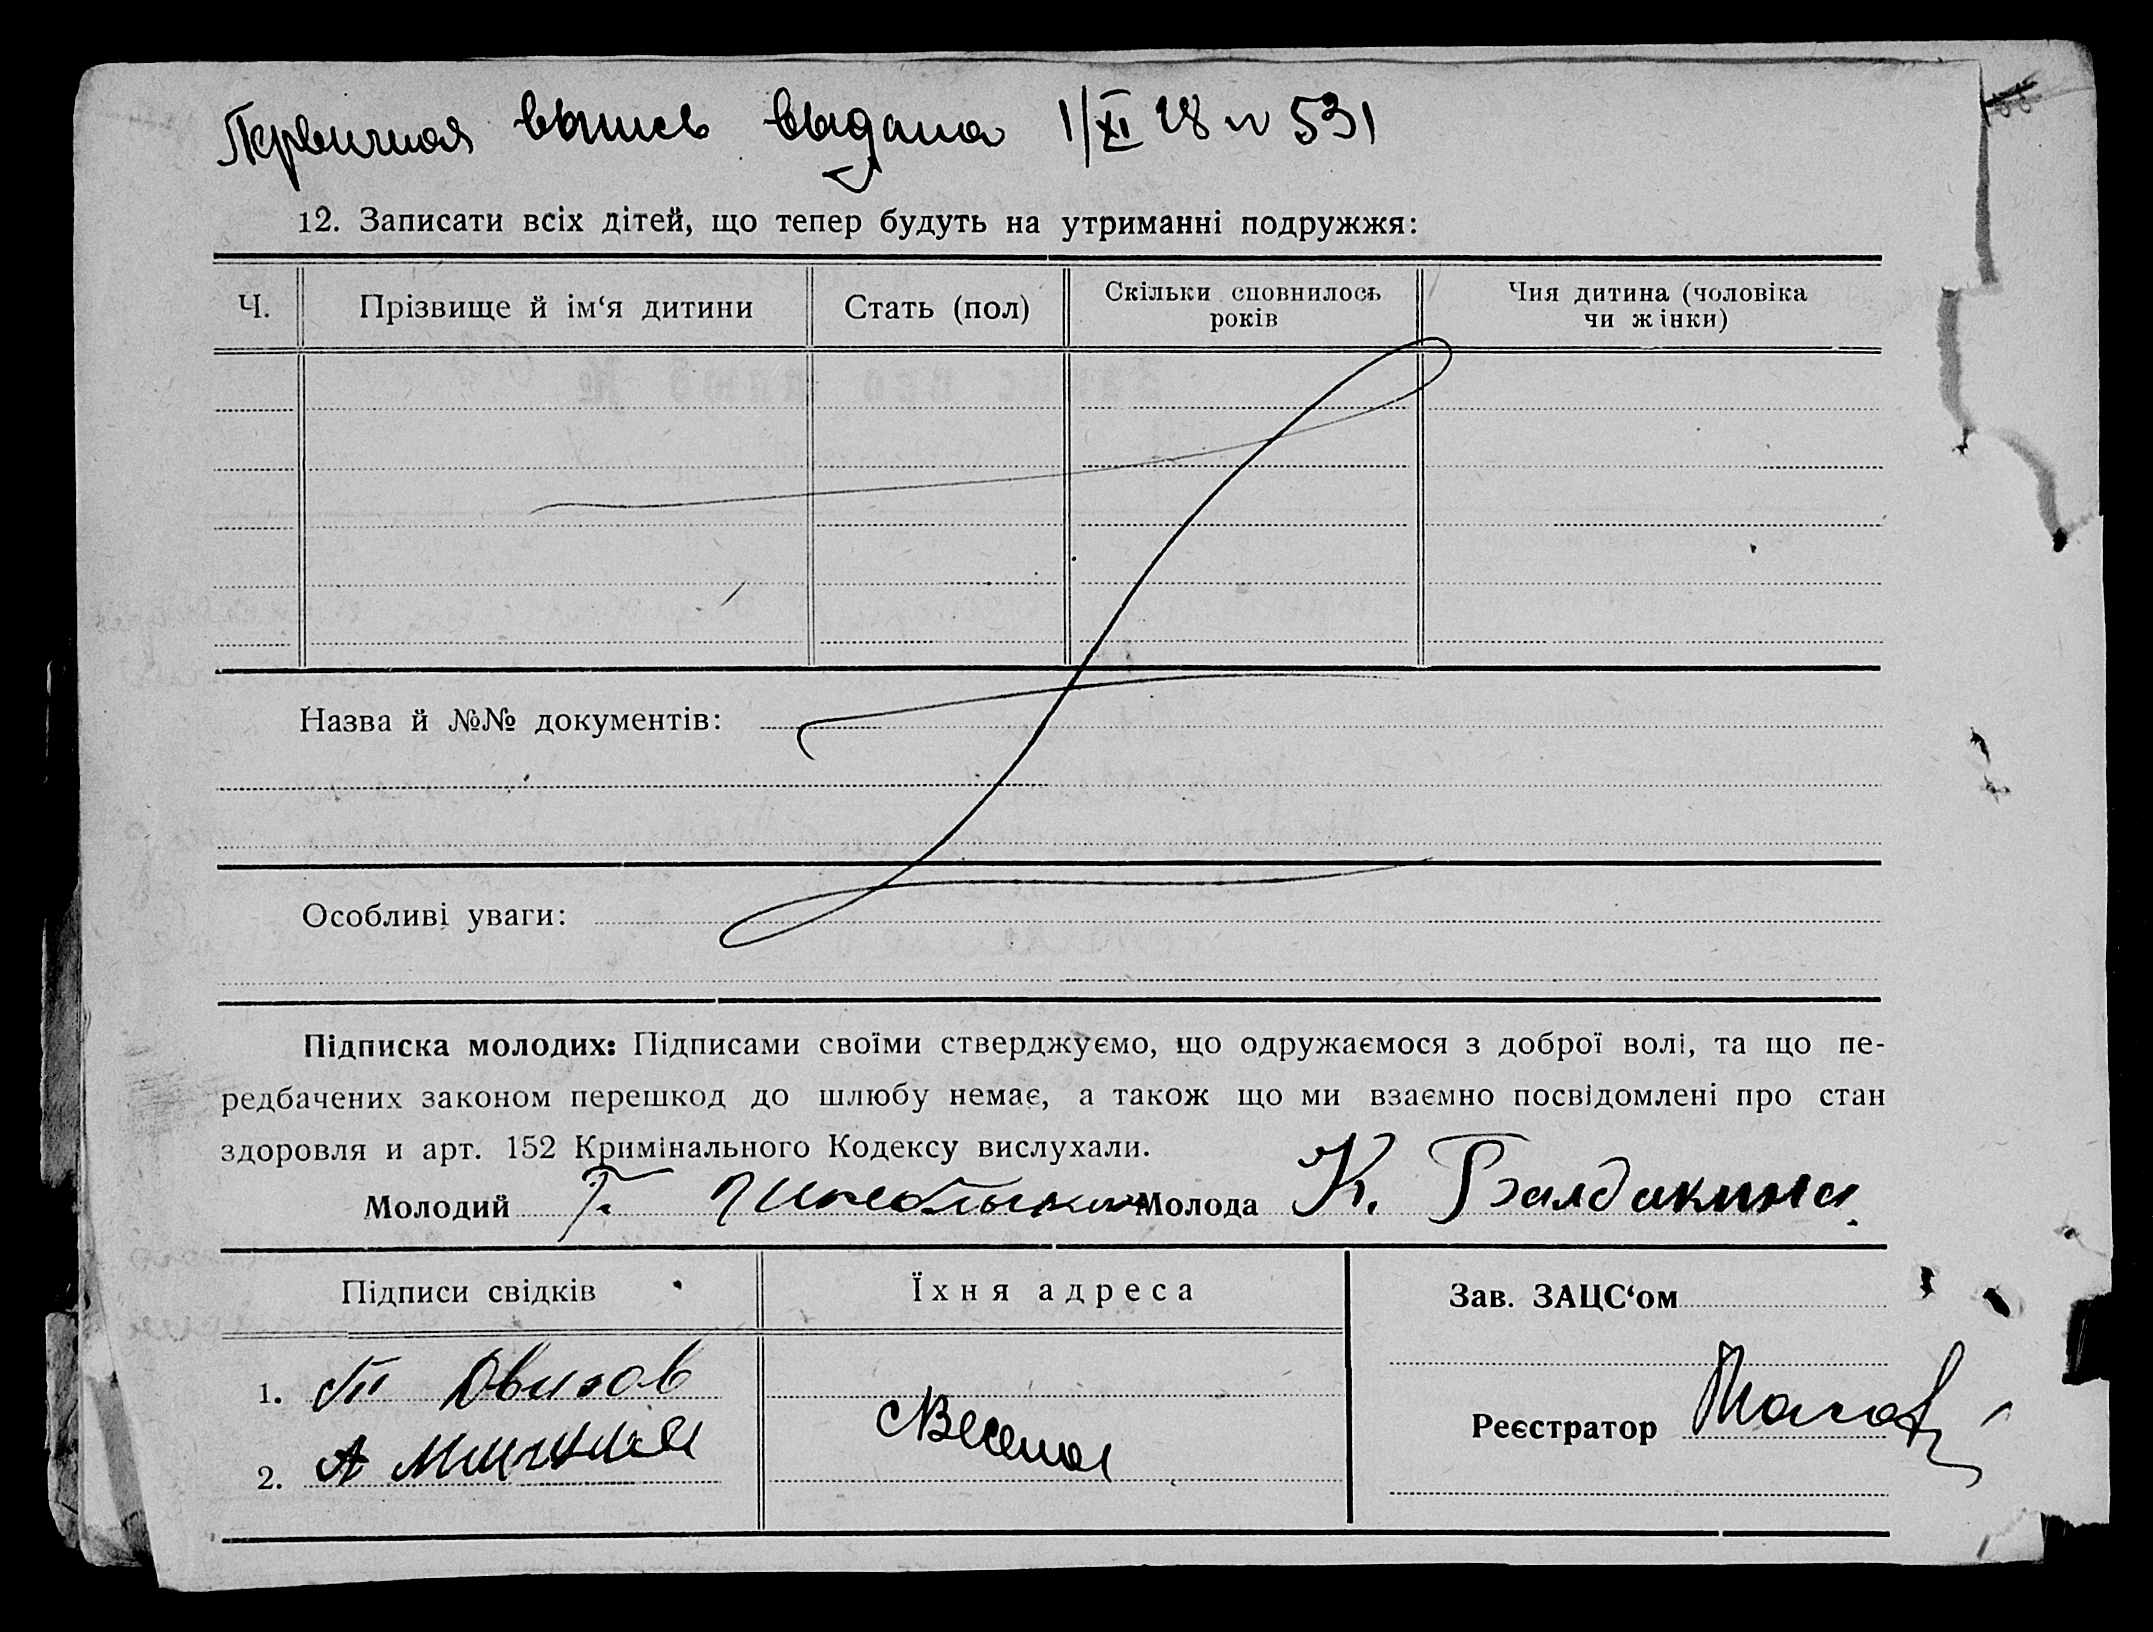 Первичная выпись выдана 1/XI 28 N 531
12. Записати всіх дітей, що тепер будуть на утриманні подружжя:
Ч. Прізвище й ім‘я дитини Стать (пол) Скільки сповнилось років Чия дитина (чоловіка чи жінки)
Назва й №№ документів:
Особливі уваги:
Підписка молодих: Підписами своїми стверджуємо, що одружаємося з доброї волі, та що пе-
редбачених законом перешкод до шлюбу немає, а також що ми взаємно посвідомлені про стан
здоровля и арт. 152 Кримінального Кодексу вислухали.
Молодий Молода К. Балдакина
Підписи свідків Їхня адреса Зав. ЗАЦС‘ом
1.
Реєстратор
2. А